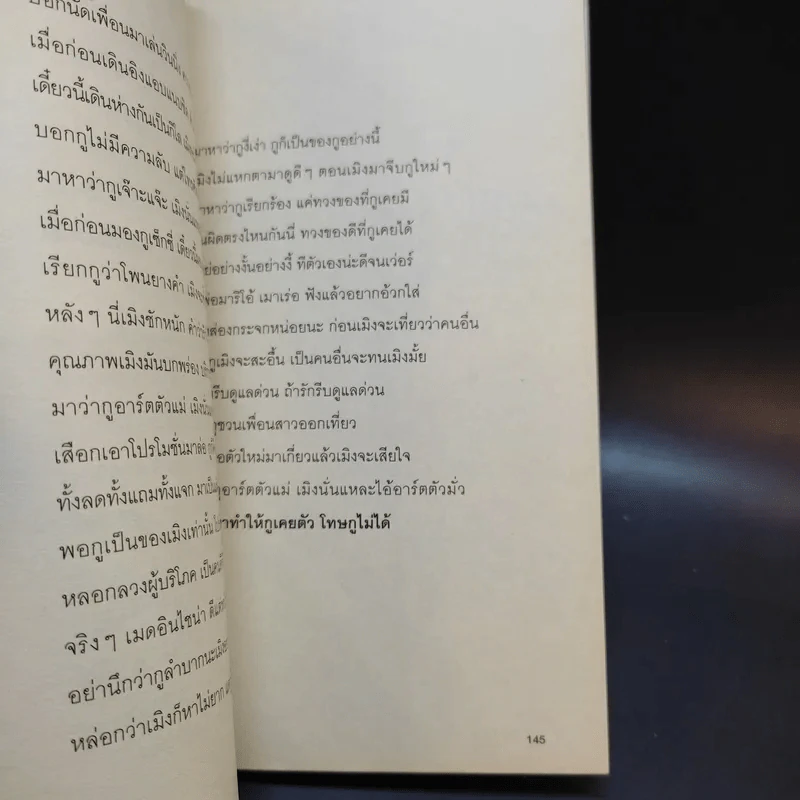 บอกนัดเพื่อนมาเล่นวินนิ่ง
เมื่อก่อนเดินอิงแอบแนบชิด
เดี๋ยวนี้เดินห่างกันเป็นกิโล
บอกกูไม่มีความลับ
มาหาว่ากูเจ๊าะแจ๊ะ
เมื่อก่อนมองกูเซ็กซี่
เรียกกูว่าโพนยางคำ
หลังๆ นี่เมิงชักหนัก
คุณภาพเมิงมันบกพร่อง
มาว่ากูอาร์ตตัวแม่
เสือกเอาโปรโมชั่นมาล่อ
ทั้งลดทั้งแถมทั้งแจก
พอกูเป็นของเมิงเท่านั้น
หลอกลวงผู้บริโภค
จริงๆ เมดอินไชน่า
อย่านึกว่ากูลำบากนะเมิง
หล่อกว่าเมิงก็หาไม่ยาก
มาหาว่ากูงี่เง่า กูก็เป็นของกูอย่างนี้
เมิงไม่แหกตามาดูดีๆ ตอนเมิงมาจีบกูใหม่ๆ
าหาว่ากูเรียกร้อง แค่ทวงของที่กูเคยมี
นผิดตรงไหนกันนี่ ทวงของดีที่กูเคยได้
ย่อย่างงั้นอย่างงี้ ทีตัวเองน่ะดีจนเว่อร์
มาริโอ้ เมาเร่อ ฟังแล้วอยากอ้วกใส่
ส่องกระจกหน่อยนะ ก่อนเมิงจะเที่ยวว่าคนอื่น
เมิงจะสะอื้น เป็นคนอื่นจะทนเมิงมั้ย
รีบดูแลด่วน ถ้ารักรีบดูแลด่วน
ชวนเพื่อนสาวออกเที่ยว
อตัวใหม่มาเกี่ยวแล้วเมิงจะเสียใจ
อาร์ตตัวแม่ เมิงนั่นแหละไอ้อาร์ตตัวมั่ว
าทำให้กูเคยตัว โทษกูไม่ได้
145